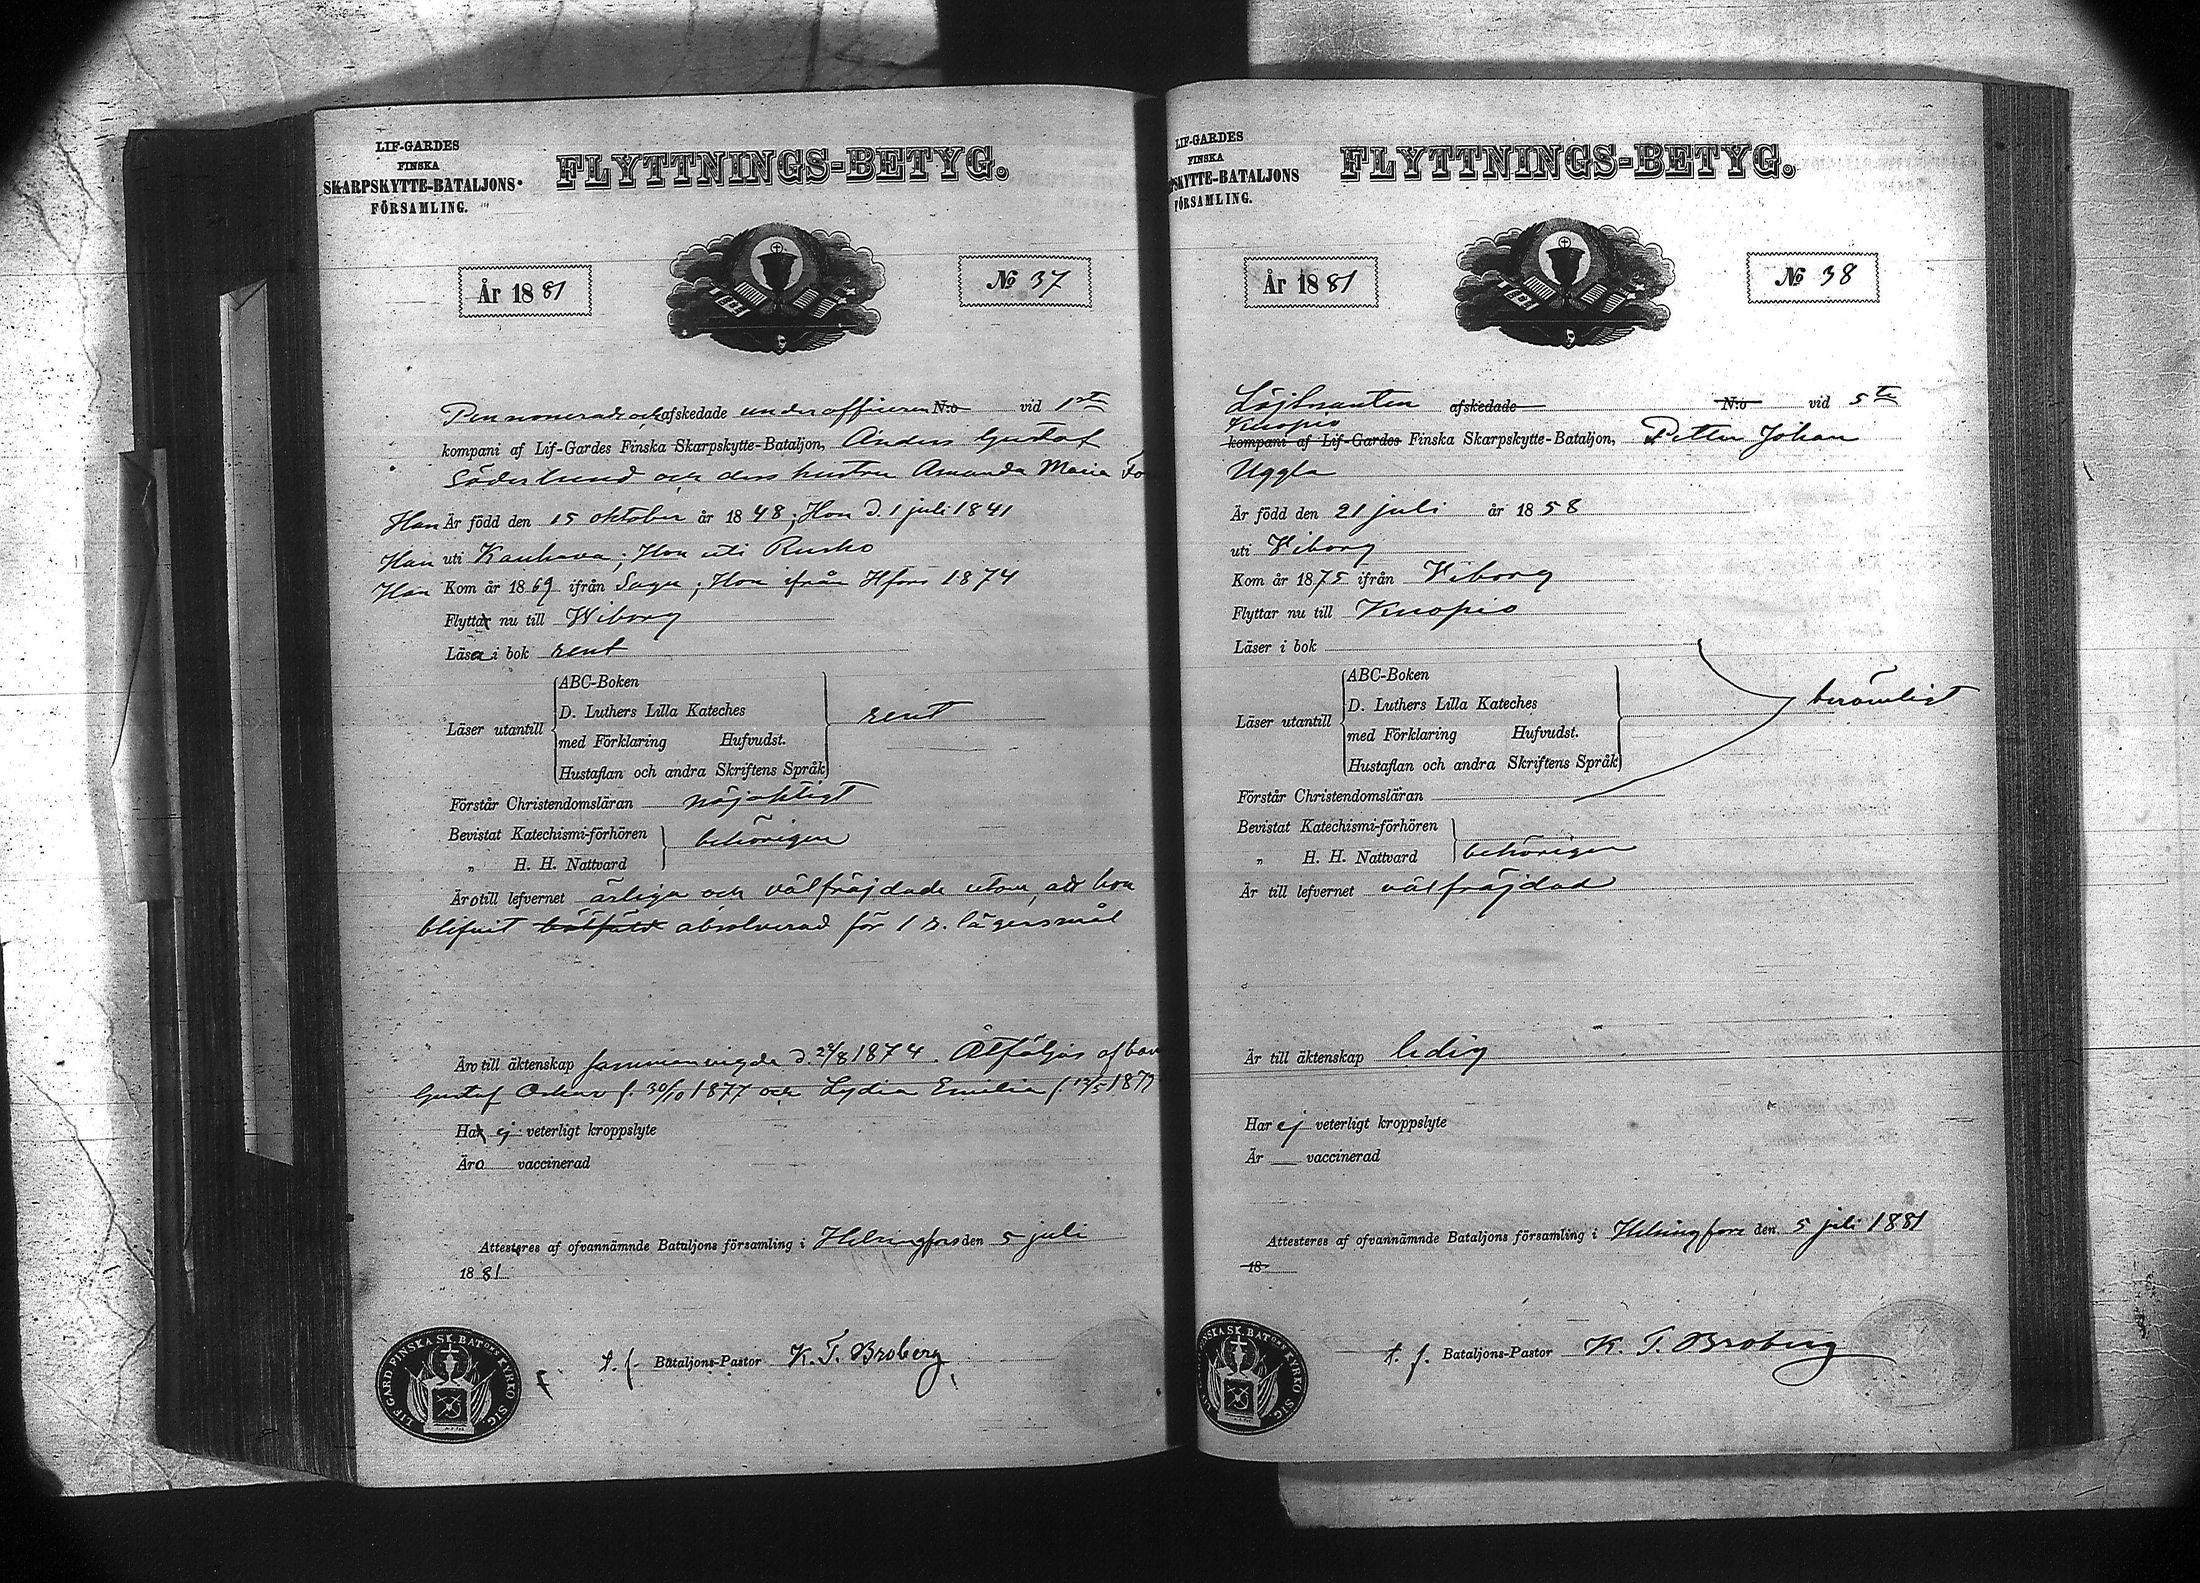 LIF-GARDES
FINSKA
SKARPSKYTTE-BATALJONS-
FÖRSAMLING.
FLYTTNINGS-BETYG.
År 1881
№ 37
Pensionerade och afskedade underofficeren N:o vid 1sta
kompani af Lif-Gardes Finska Skarpskytte-Bataljon, Anders Gustaf
Söderlund och dess hustru Amanda Maria
Han Är född den 15 oktober år 1848; Hon d. 1 juli 1841
Han uti Kauhava; Hon uti Rusko
Han Kom år 1869 ifrån Sagu; Hon ifrån Hfors 1874
Flytta nu till Wiborg
Läsa i bok rent
Läser utantill
ABC-Boken
D. Luthers Lilla Kateches
med Förklaring Hufvudst.
Hustaflan och andra Skriftens Språk
rent
Förstår Christendomsläran nöjaktigt
Bevistat Katechismi-förhören
„ H. H. Nattvard
behörigen
Äro till lefvernet ärliga och välfräjdade utom, att hon
blifvit absolverad för 1 r. lägersmål
Äro till äktenskap sammanvigda d. 24/8 1874. Åtföljas af barn
Gustaf Oskar f. 30/10 1877 och Lydia Emilia f. 12/5 1879
Ha ej veterligt kroppslyte
Äro vaccinerad
Attesteres af ofvannämnde Bataljons församling i Helsingfors den 5 juli
1881
LIF.GARD.FINSKA SK.BATONS KYRKO SIG.
t. f. Bataljons-Pastor K. T. Broberg
LIF-GARDES
FINSKA
SKYTTE-BATALJONS
FÖRSAMLING.
FLYTTNINGS-BETYG.
År 1881
№ 38
Löjtnanten afskedade N:o vid 5te
Kuopio
kompani af Lif-Gardes Finska Skarpskytte-Bataljon, Petter Johan
Uggla
Är född den 21 juli år 1858
uti Viborg
Kom år 1875 ifrån Viborg
Flyttar nu till Kuopio
Läser i bok
Läser utantill
ABC-Boken
D. Luthers Lilla Kateches
med Förklaring Hufvudst.
Hustaflan och andra Skriftens Språk
berömligt
Förstår Christendomsläran
Bevistat Katechismi-förhören
„ H. H. Nattvard
behörigen
Är till lefvernet välfräjdad
Är till äktenskap ledig
Har ej veterligt kroppslyte
Är — vaccinerad
Attesteres af ofvannämnde Bataljons församling i Helsingfors den 5 juli 1881
18
FINSKA SK.BATONS KYRKO SIG.
t. f. Bataljons-Pastor K. T. Broberg